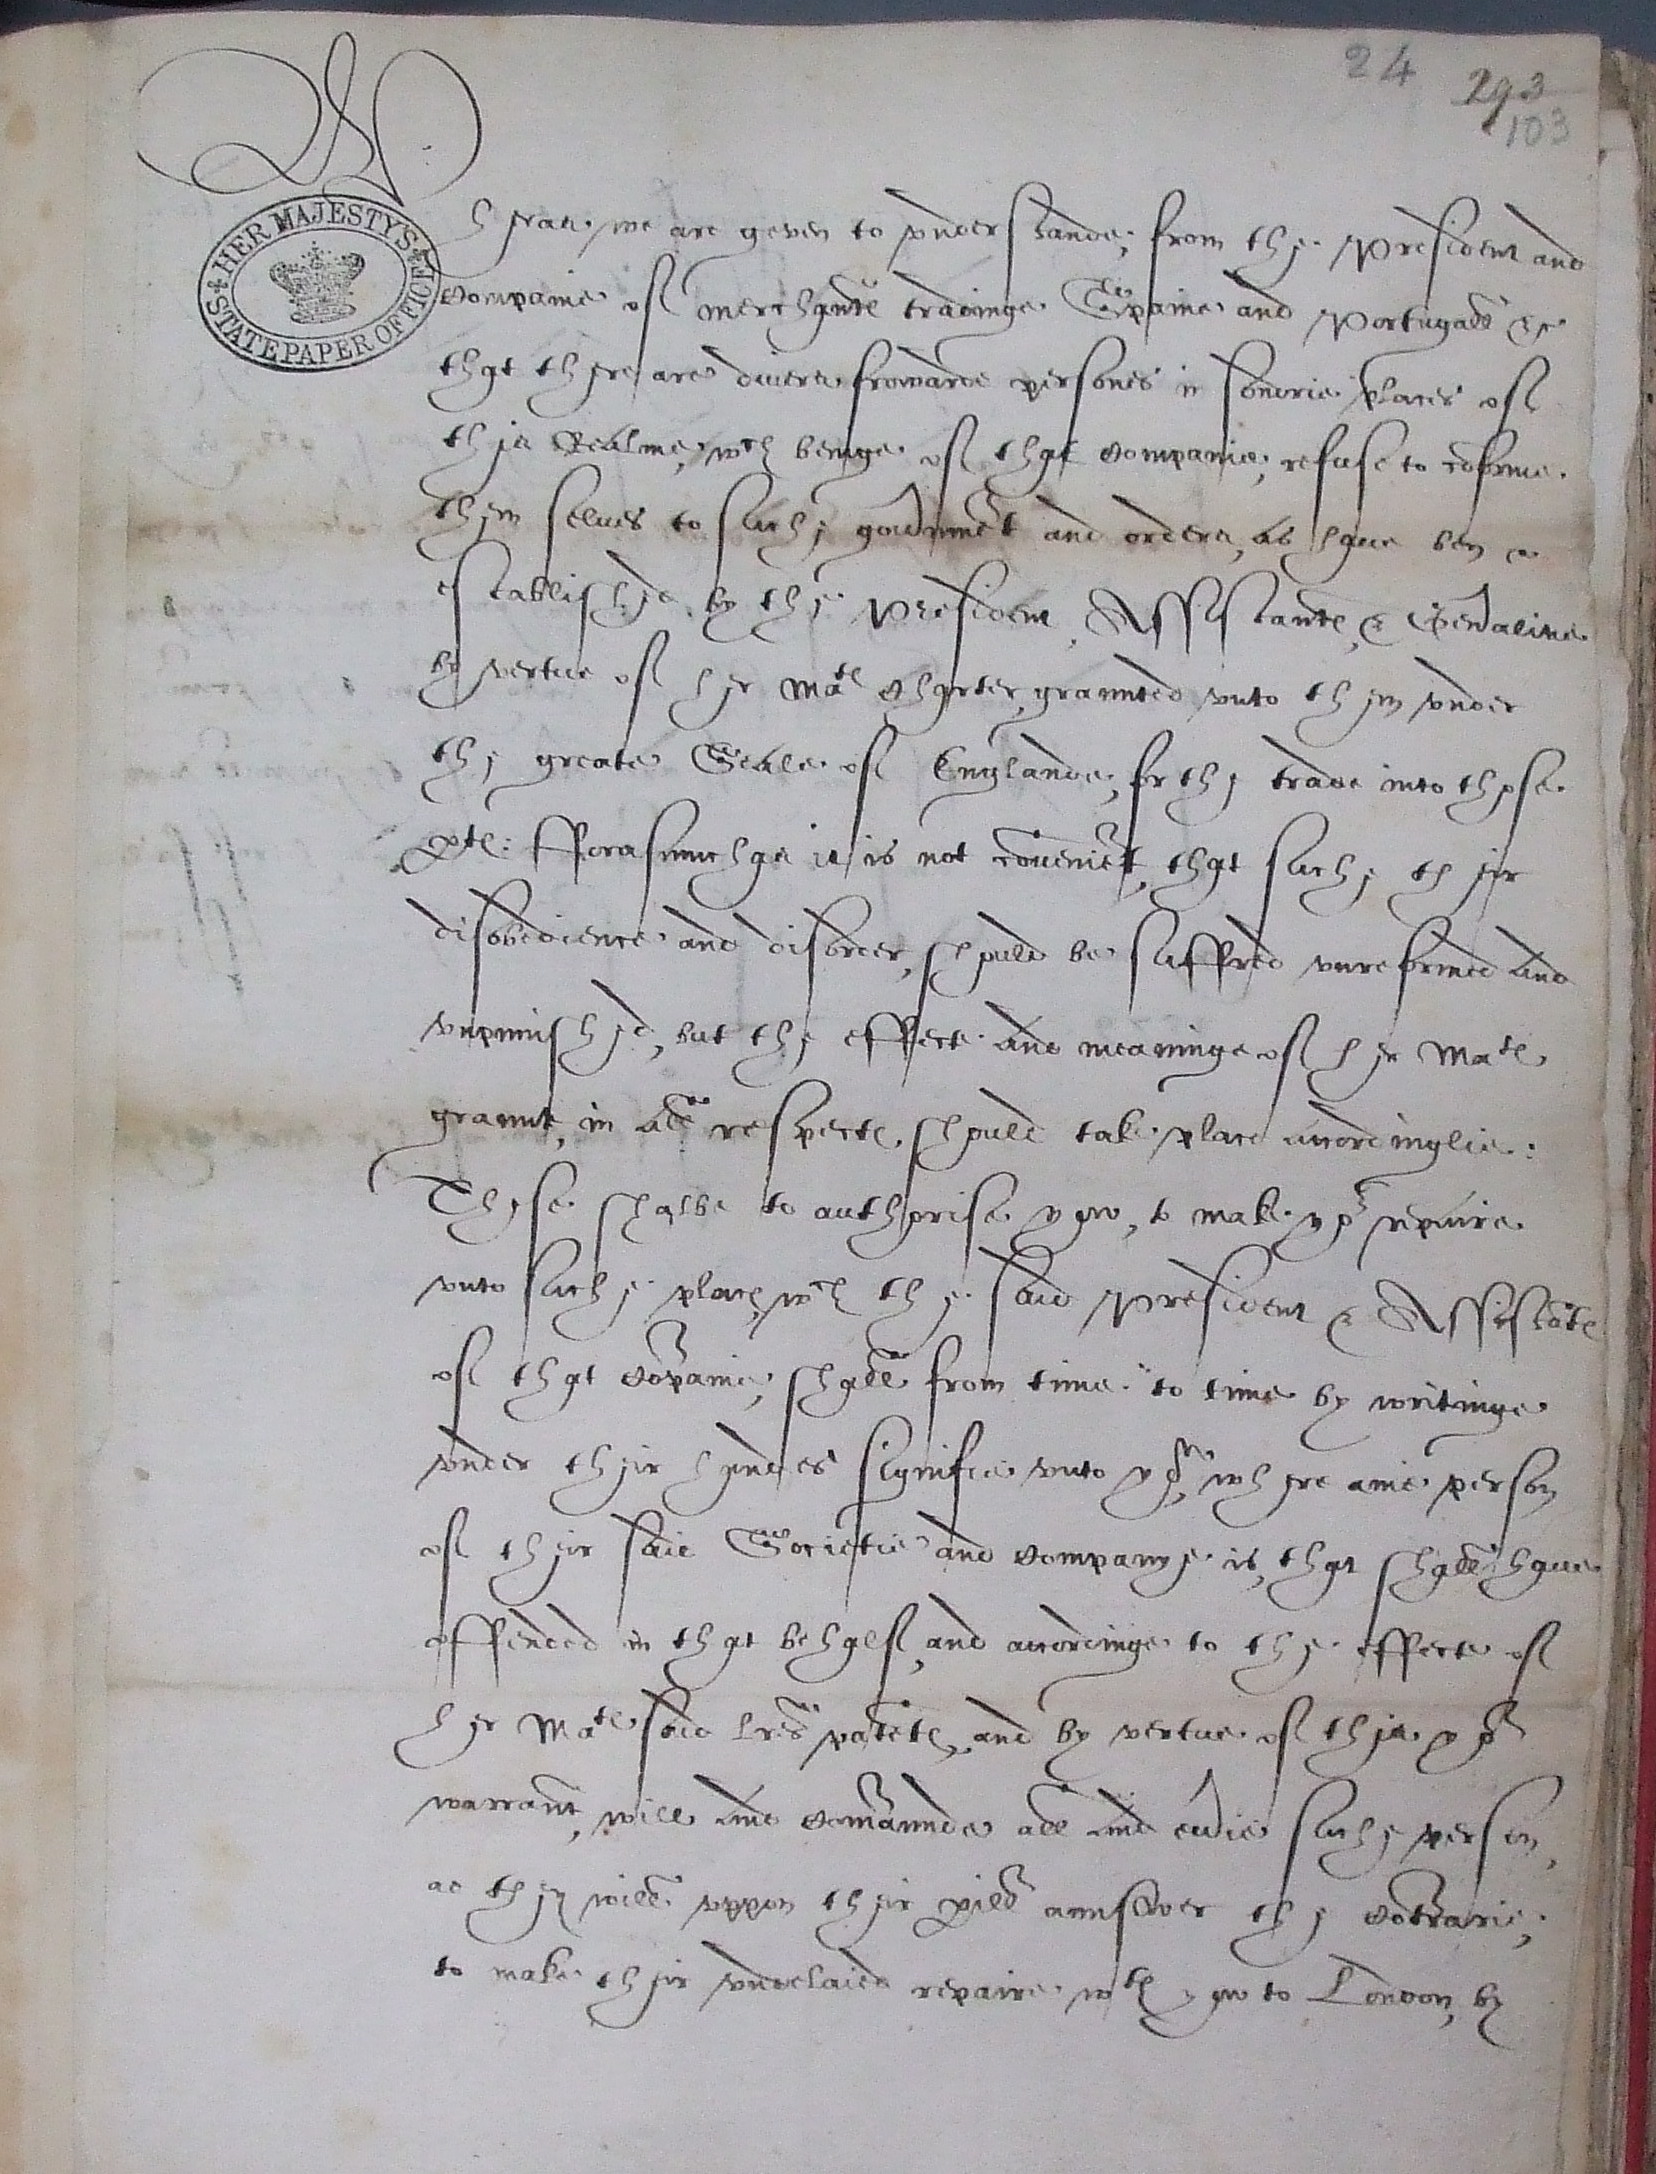 24 293
103
HER MAJESTY'S
STATE PAPER OFFICE
Wheras we are geven to vnderstande, from the President and
Companie of merchantes tradinge Spaine and Portugall &c
that there are divers frowarde persones in sondrie places of
this Realme, wch beinge of that Companie, refuse to coforme
them selues to suche gouernmet and orders, as haue ben
established by the President, Assistantes, & Generalitie
by vertue of her Mates Charter graunted vnto them vnder
the greate Seale of Englande, for the trade into those
ptes: fforasmuch as it is not conueniet, that suche their
disobedience and disorder, should be suffred vnreformed and
vnpunished, but the effecte and meaninge of her Mates
graunt, in all respectes should take place accordinglie:
These shalbe to authorise yow, to make yor repaire
vnto suche place, wch the said President & Assistates
of that Copanie, shall from time to time by writinge
vnder their handes signifie vnto you, where anie person
of their said Societie and Companye is, that shall haue
offended in that behalf, and accordinge to the effecte of
her Mates said lres patetes, and by vertue of this yor
warrant, will and comaunde all and euerie suche person,
as they will vppon their perill aunswer the cotrarie,
to make their vndelaied repaire wth yow to London, by